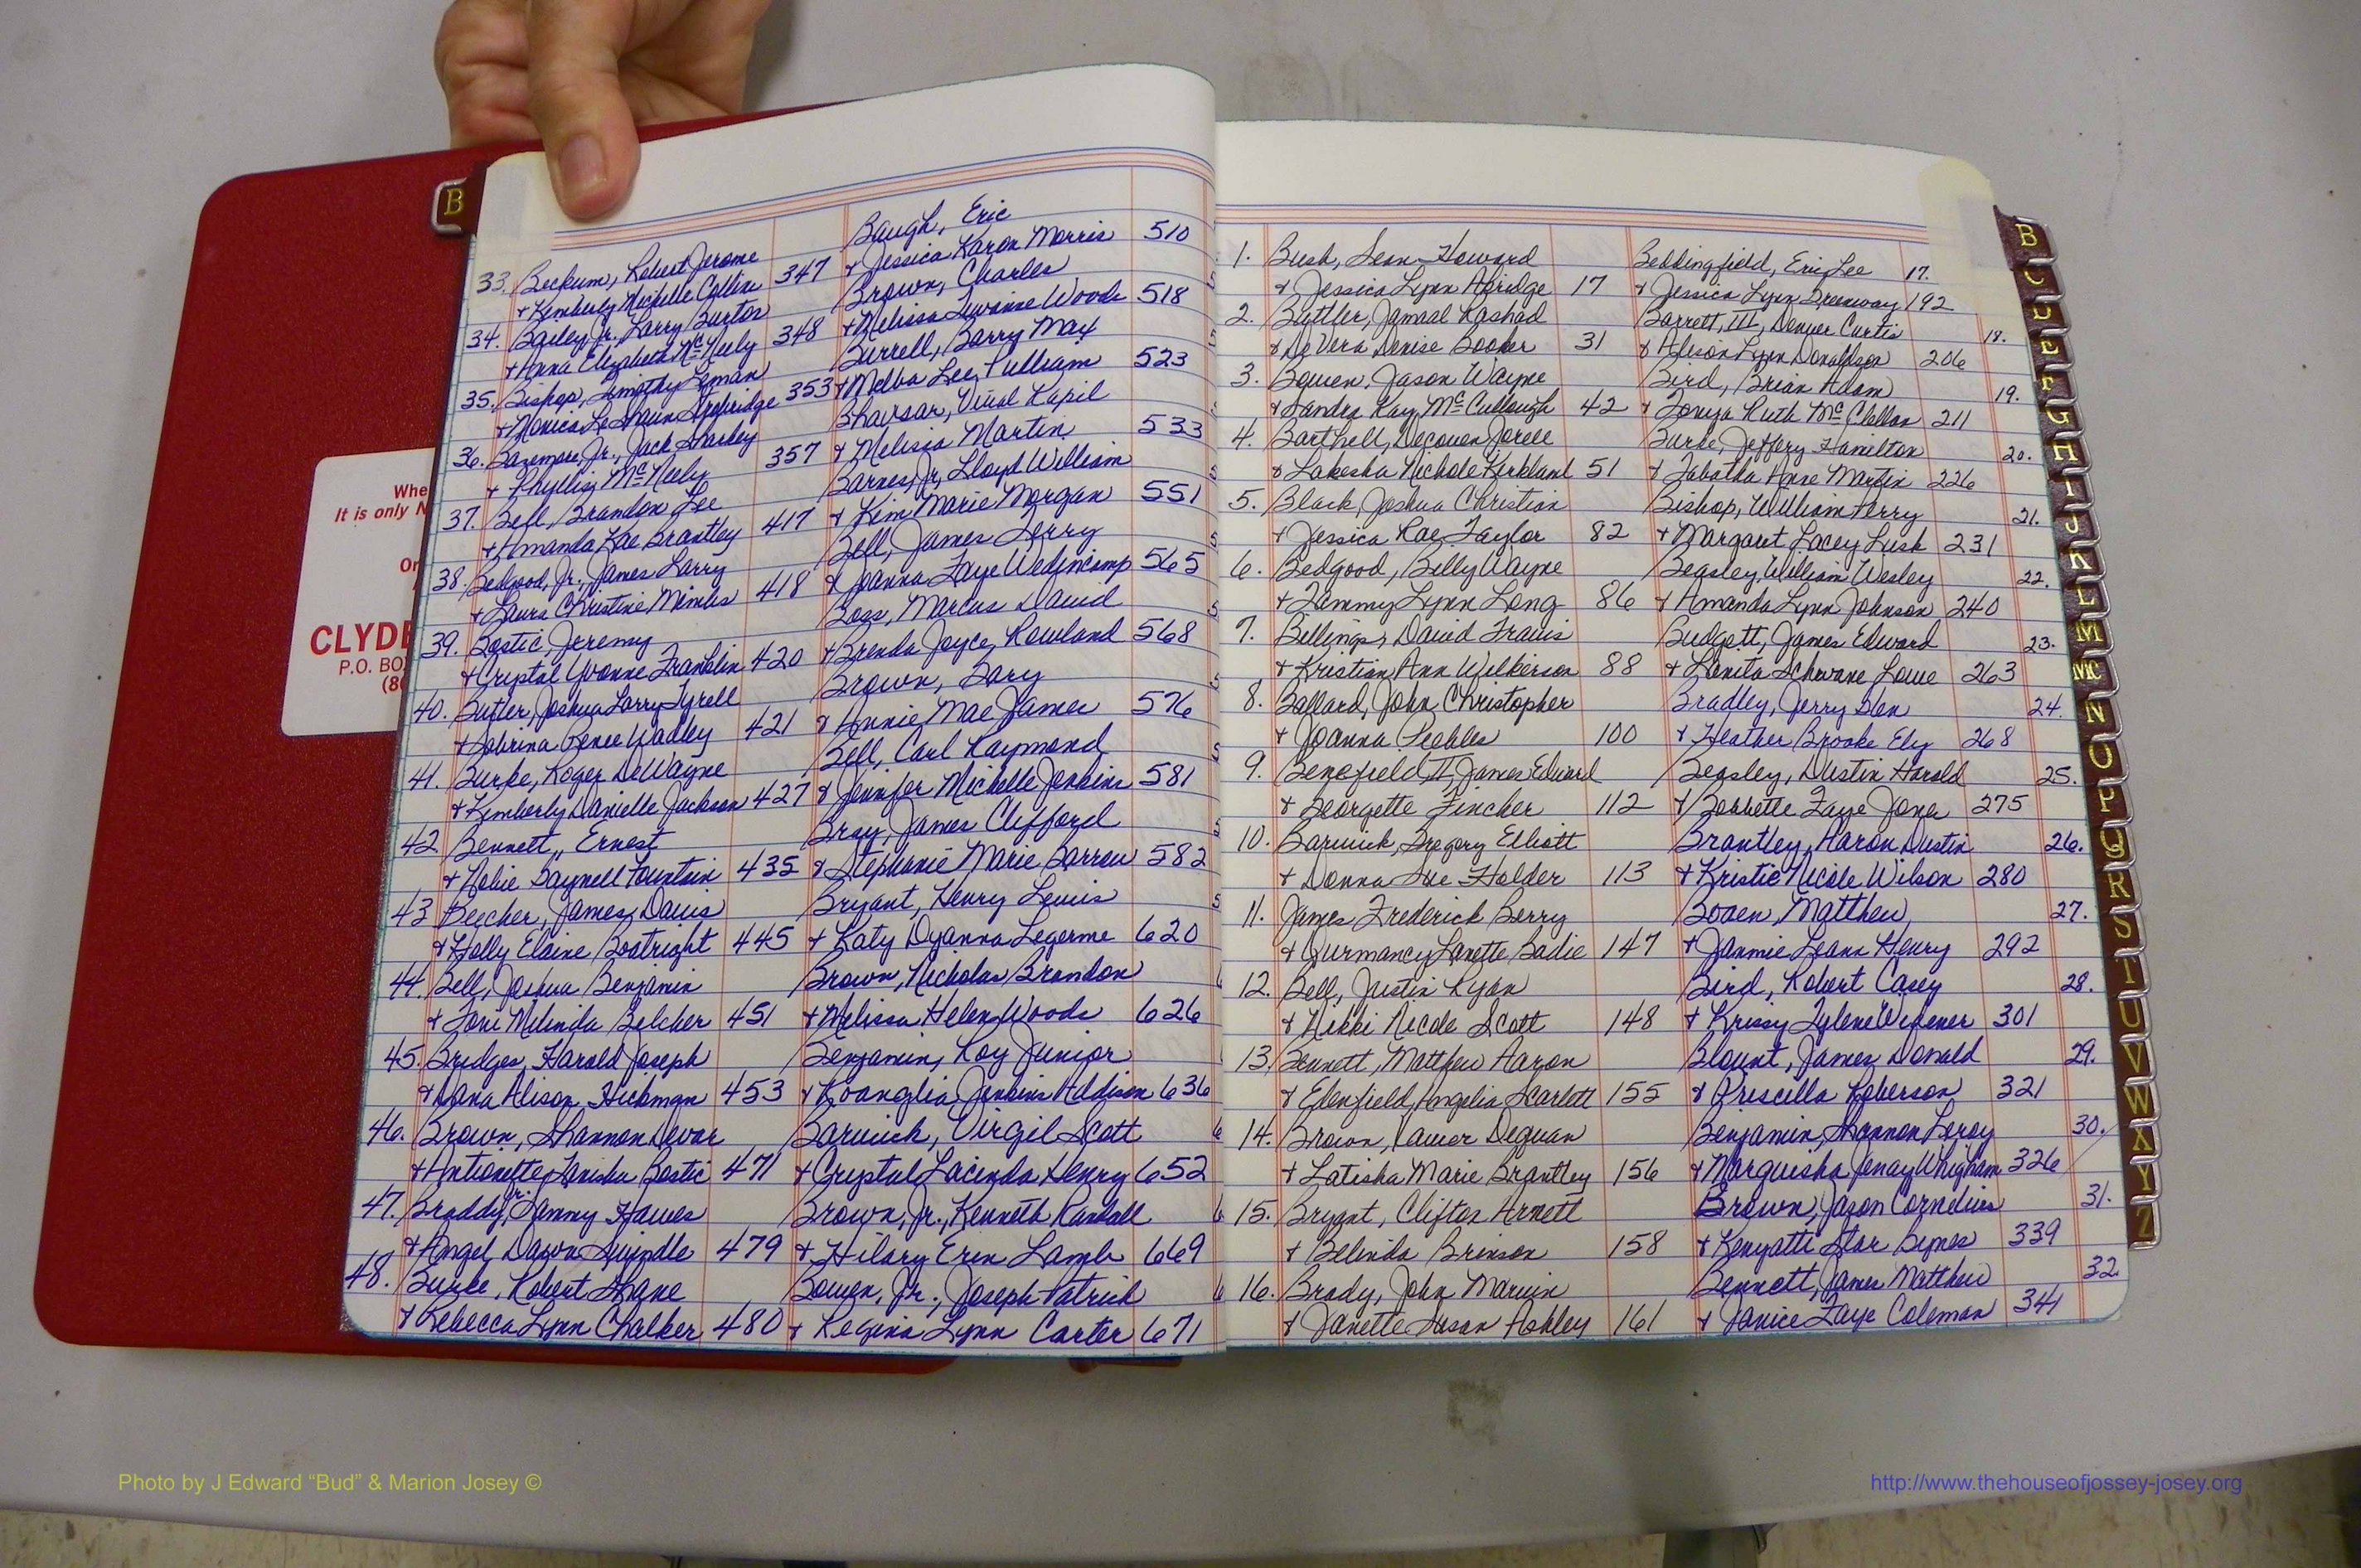 B
33. Beckum, Robert Jerome
+ Kimberly Michelle Collins 347
34. Bailey, Jr., Larry Burton
+ Anna Elizabeth McNeely 348
35. Bishop, Timothy Leman
+ Monica LeShaun 353
36. Bazemore, Jr., Jack Stanley
+ Phyllis McNeely 357
37. Bell, Brandon Lee
+ Amanda Rae Brantley 417
38. Bedgood, Jr., James Larry
+ Laura Christine Mimbs 418
39. Bostic, Jeremy
+ Crystal Yvonne Franklin 420
40. Butler, Joshua Larry Tyrell
+ Sabrina Renee Wadley 421
41. Burke, Roger DeWayne
+ Kimberly Danielle Jackson 427
42 Bennett, Ernest
+ Nobie Gaynell Fountain 435
43 Beecher, James Davis
+ Holly Elaine Boatright 445
44. Bell, Joshua Benjamin
+ Toni Melinda Belcher 451
45. Bridges, Harold Joseph
+ Dana Alison Hickman 453
46. Brown, Shannon Devar
+ Antionette Lanisha Bostic 471
47. Braddy, Jr. Tammy Hawes
+ Angel Dawn Swindle 479
48. Burke, Robert Shane
+ Rebecca Lynn Chalker 480
Baugh, Eric
+ Jessica Karon Morris 510
Brown, Charles
+ Melissa Woods 518
Burrell, Barry Max
+ Melba Lee Pulliam 523
Bhavsar, Viral Kapil
+ Melisia Martin 533
Barnes, Jr, Lloyd William
+ Kim Marie Morgan 551
Bell, James Terry
+ Joanna Faye Wedincamp 565
Boss, Marcus David
+ Brenda Joyce Rowland 568
Brown, Gary
+ Annie Mae James 576
Bell, Carl Raymond
+ Jennifer Michelle Jenkins 581
Bray, James Clifford
+ Stephanie Marie Barrow 582
Bryant, Henry Lewis
+ Katy Dyanna Legerme 620
Brown, Nicholas Brandon
+ Melissa Helen Woods 626
Benjamin, Roy Junior
+ Roanglia Jenkins Addison 636
Barwick, Virgil Scott
+ Crystal Lacinda Henry 652
Brown, Jr., Kenneth Randall
+ Hilary Erin Lamb 669
Bowen, Jr., Joseph Patrick
+ Regina Lynn Carter 671
1. Bush, Sean Howard
+ Jessica Lynn Abridge 17
2. Buttler, Jamaal Rashad
+ DeVera Denise Booker 31
3. Bowen, Jason Wayne
+ Sandra Kay McCullough 42
4. Barthell, Decoven Jorell
+ Lakesha Nichole Kirkland 51
5. Black, Joshua Christian
+ Jessica Rae Taylor 82
6. Bedgood, Billy Wayne
+ Tammy Lynn Long 86
7. Billings, David Travis
+ Kristian Ann Wilkerson 88
8. Ballard, John Christopher
+ Joanna Peebles 100
9. Benefield, II, James Edward
+ Georgette Fincher 112
10. Barwick, Gregory Elliott
+ Donna Sue Holder 113
11. James Frederick Berry
+ Qurmancy Lanette Badie 147
12. Bell, Justin Ryan
+ Nikki Nicole Scott 148
13. Bennett, Matthew Aaron
+ Edenfield, Angelia Scarlett 155
14. Brown, Dequan
+ Latisha Marie Brantley 156
15. Bryant, Clifton Arnett
+ Belinda Brinson 158
16. Brady, John Marvin
+ Janette Susan Ashley 161
Beddingfield, Eric Lee 17.
+ Jessica Lynn Greenway 192
Barrett, III, Denver Curtis 18.
+ Alison Lynn Donaldson 206
Bird, Brian Adam 19.
+ Tonya Ruth McClellan 211
Burke, Jeffery Hamilton 20.
+ Tabatha Anne Martin 226
Bishop, William Perry 21.
+ Margaret Lacey Lusk 231
Beasley, William Wesley 22.
+ Amanda Lynn Johnson 240
Budgett, James Edward 23.
+ Lanita Schwane Lowe 263
Bradley, Jerry Glen 24.
+ Heather Brooke Ely 268
Beasley, Dustin Harold 25.
+ Bobbette Faye Jones 275
Brantley, Aaron Dustin 26.
+ Kristie Nicole Wilson 280
Boaen, Matthew 27.
+ Jammie Leann Henry 292
Bird, Robert Casey 28.
+ Krissy Tylene Widener 301
Blount, James Donald 29.
+ Priscilla Roberson 321
Benjamin, Shannon Leroy 30.
+ Marquisha Janay Whigham 326
Brown, Jason Cornelius 31.
+ Kenyatti Star Bynes 339
Bennett, James Matthew 32.
+ Janice Faye Coleman 341
B
C
D
E
F
G
H
I
J
K
L
M
MC
N
O
P
Q
R
S
T
U
V
W
X
Y
Z
Whe
It is only N
Or
CLYDE
P.O. BO
(8
Photo by J Edward “Bud” & Marion Josey ©
http://www.thehouseofjossey-josey.org